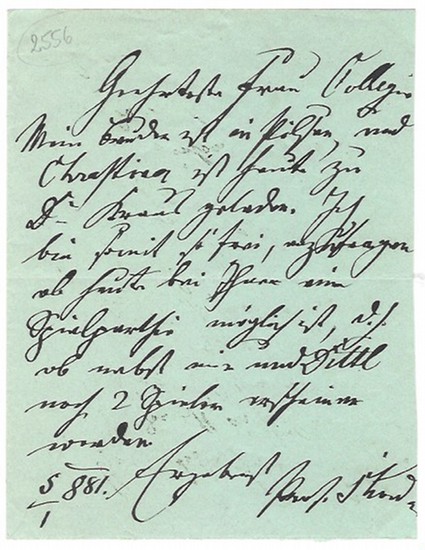 2556
Geehrteste Frau Collegin
Mein Bruder ist in Pilsen, und
Chrastina ist heute zu
Dr Kraus geladen. Ich
bin somit so frei, anzufragen
ob heute bei Ihnen eine
Spielparthie möglich ist, d.h.
ob nebst mir und Dittl
noch 2 Spieler erscheinen
werden.
Ergebenst
5/1 881.
Prof. Skoda